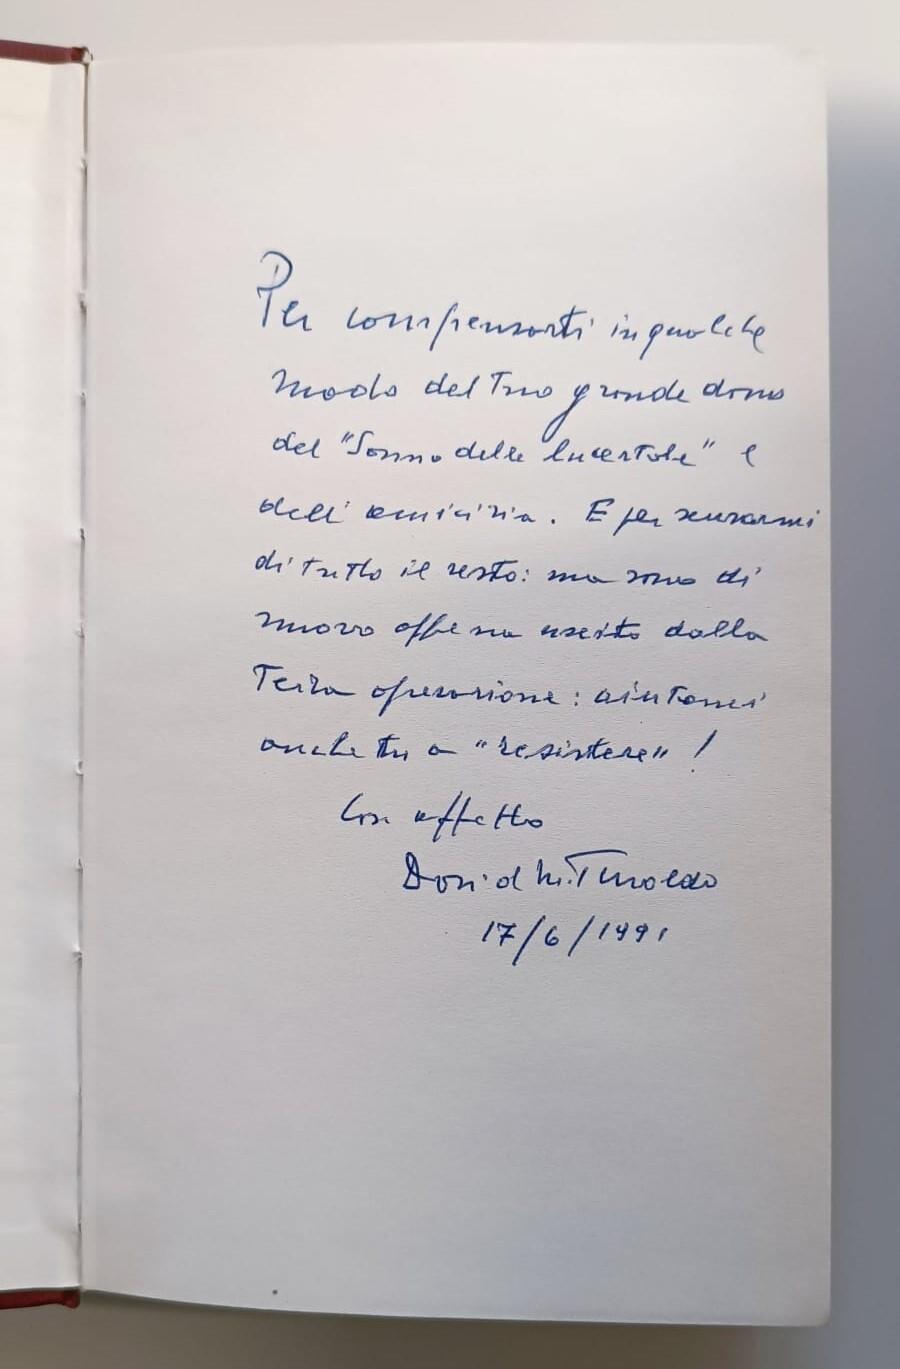 Per compensarti in qualche
modo del Tuo grande dono
del "Sonno delle lucertole" e
dell'amicizia. E per scusarmi
di tutto il resto: ma sono di
nuovo appena uscito dalla
Terza operazione: aiutami
anche tu a "resistere"!
Con affetto
David M. Turoldo
17/6/1991